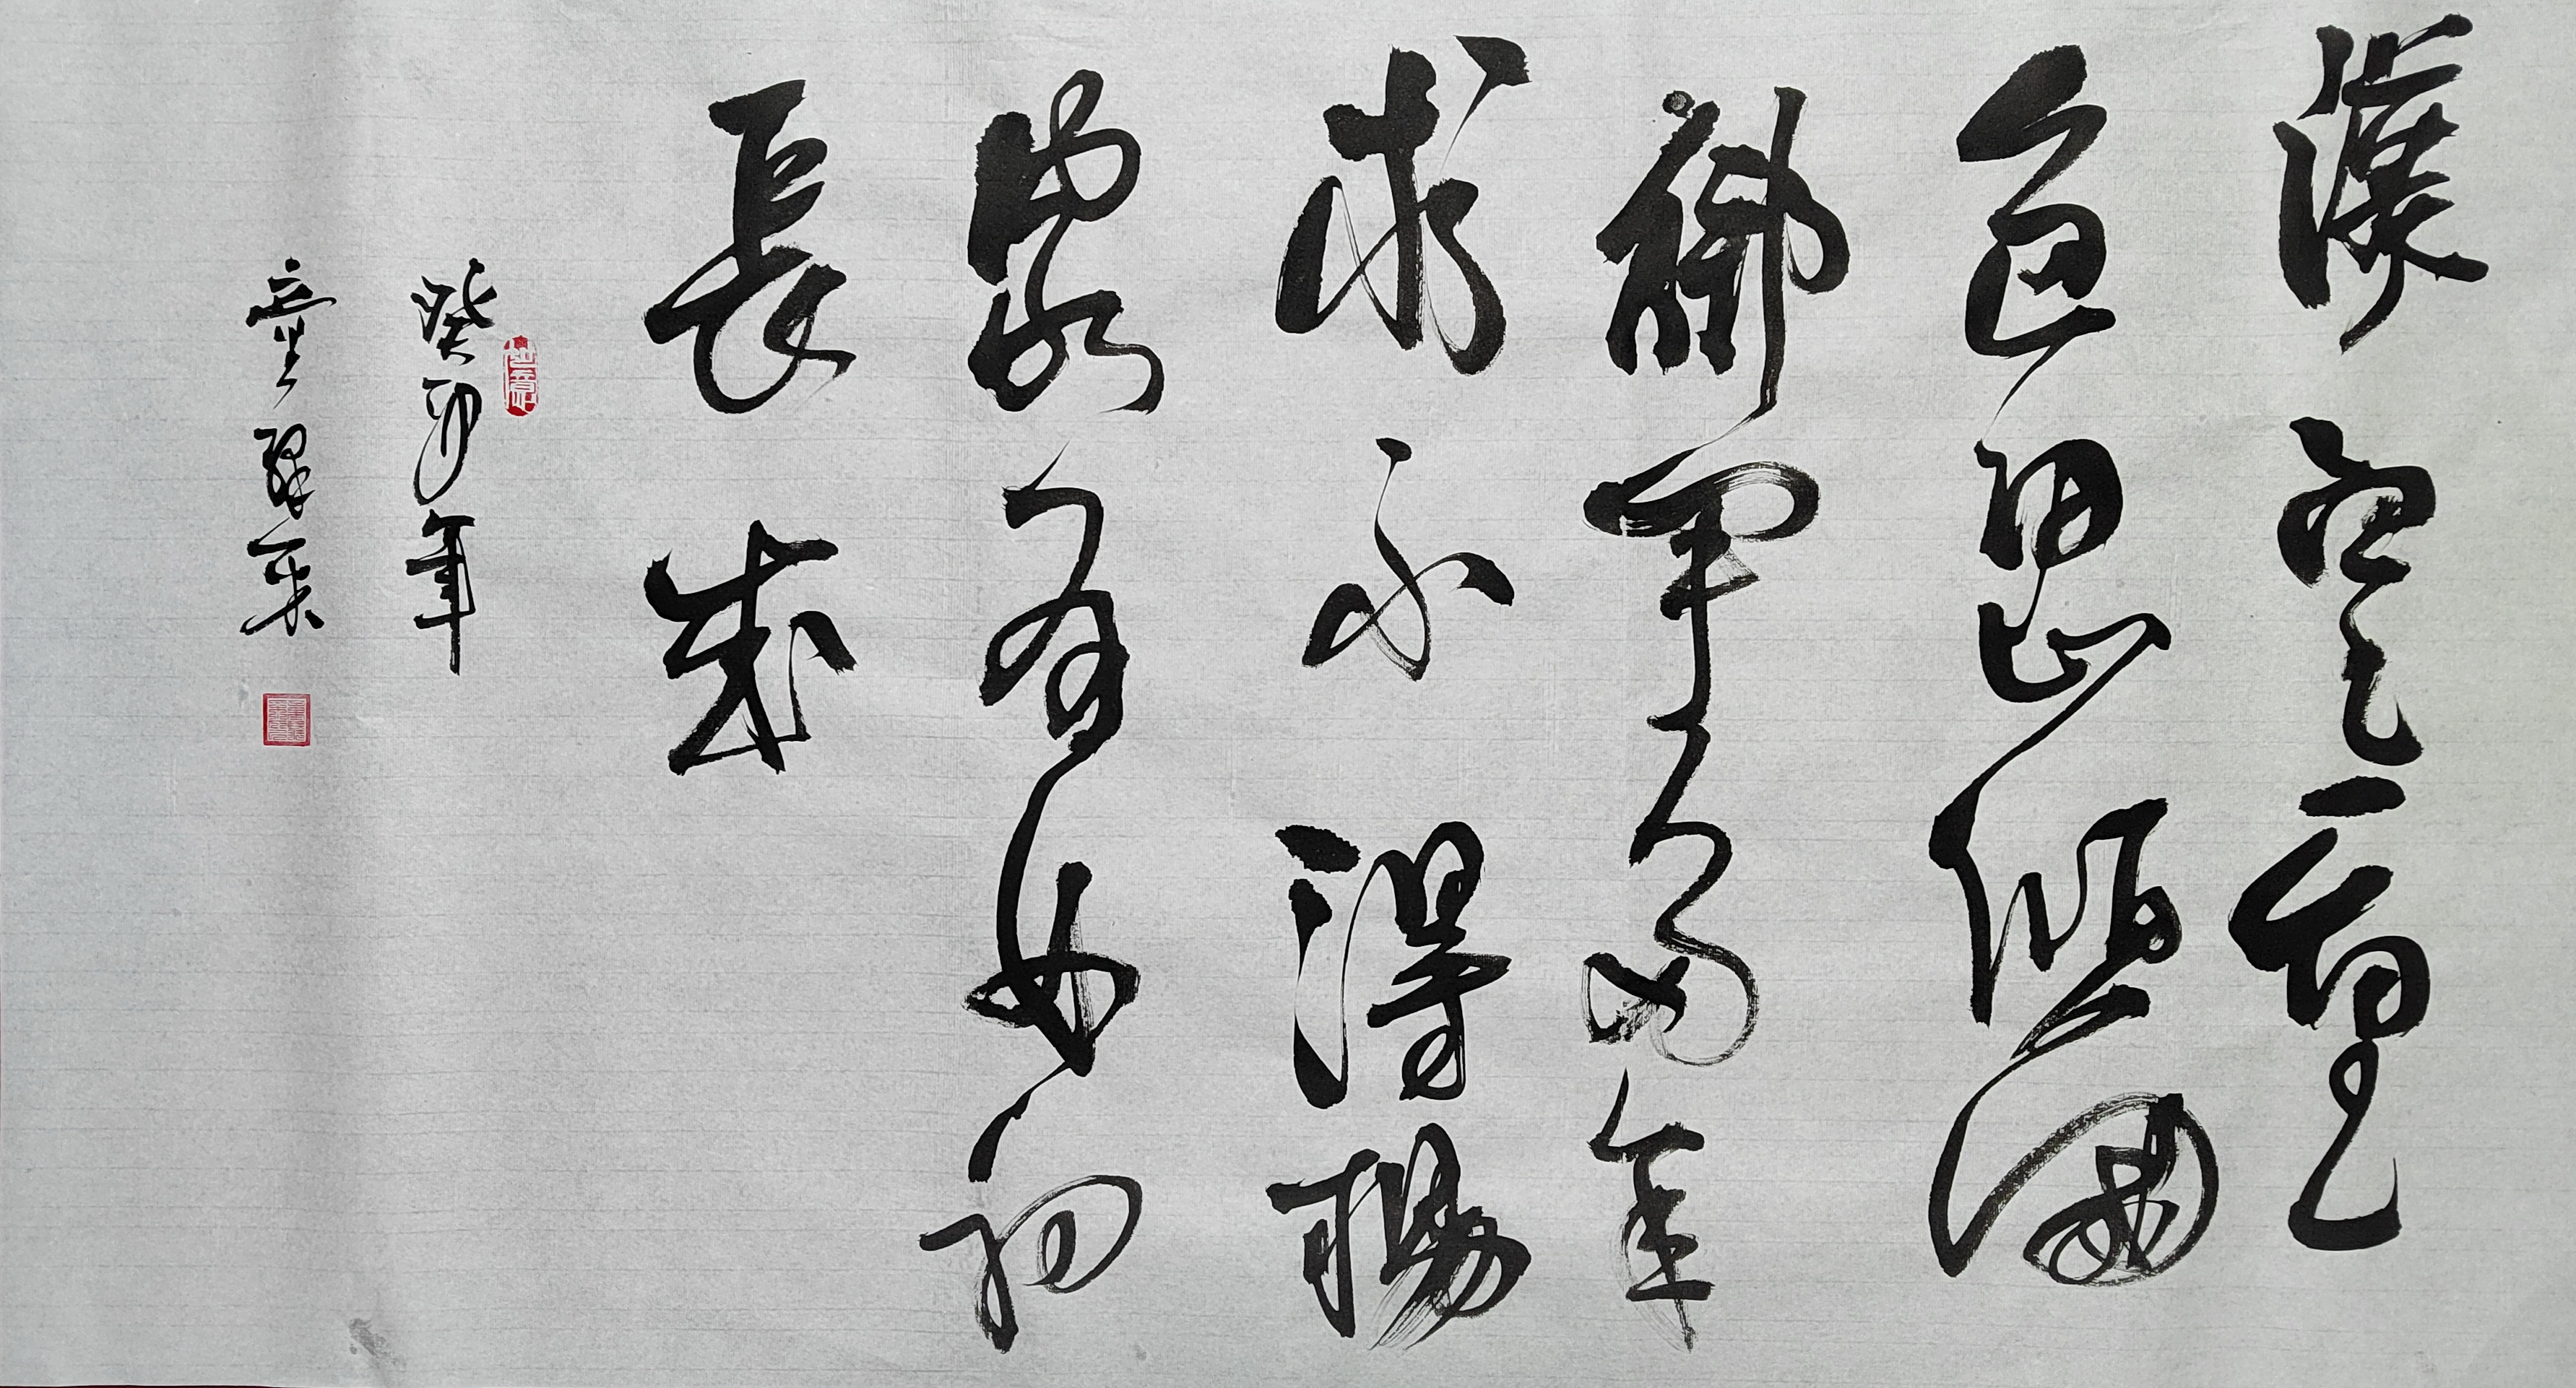 漢皇重
色思傾國
御宇多年
求不得楊
家有女初
長成
癸卯年